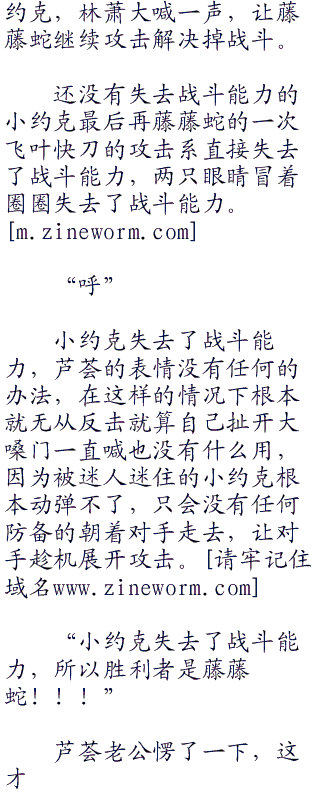 约克，林萧大喊一声，让藤
藤蛇继续攻击解决掉战斗。
还没有失去战斗能力的
小约克最后再藤藤蛇的一次
飞叶快刀的攻击系直接失去
了战斗能力，两只眼睛冒着
圈圈失去了战斗能力。
[m.zineworm.com]
“呼”
小约克失去了战斗能
力，芦荟的表情没有任何的
办法，在这样的情况下根本
就无从反击就算自己扯开大
嗓门一直喊也没有什么用，
因为被迷人迷住的小约克根
本动弹不了，只会没有任何
防备的朝着对手走去，让对
手趁机展开攻击。[请牢记住
域名www.zineworm.com]
“小约克失去了战斗能
力，所以胜利者是藤藤
蛇！！！”
芦荟老公愣了一下，这
才